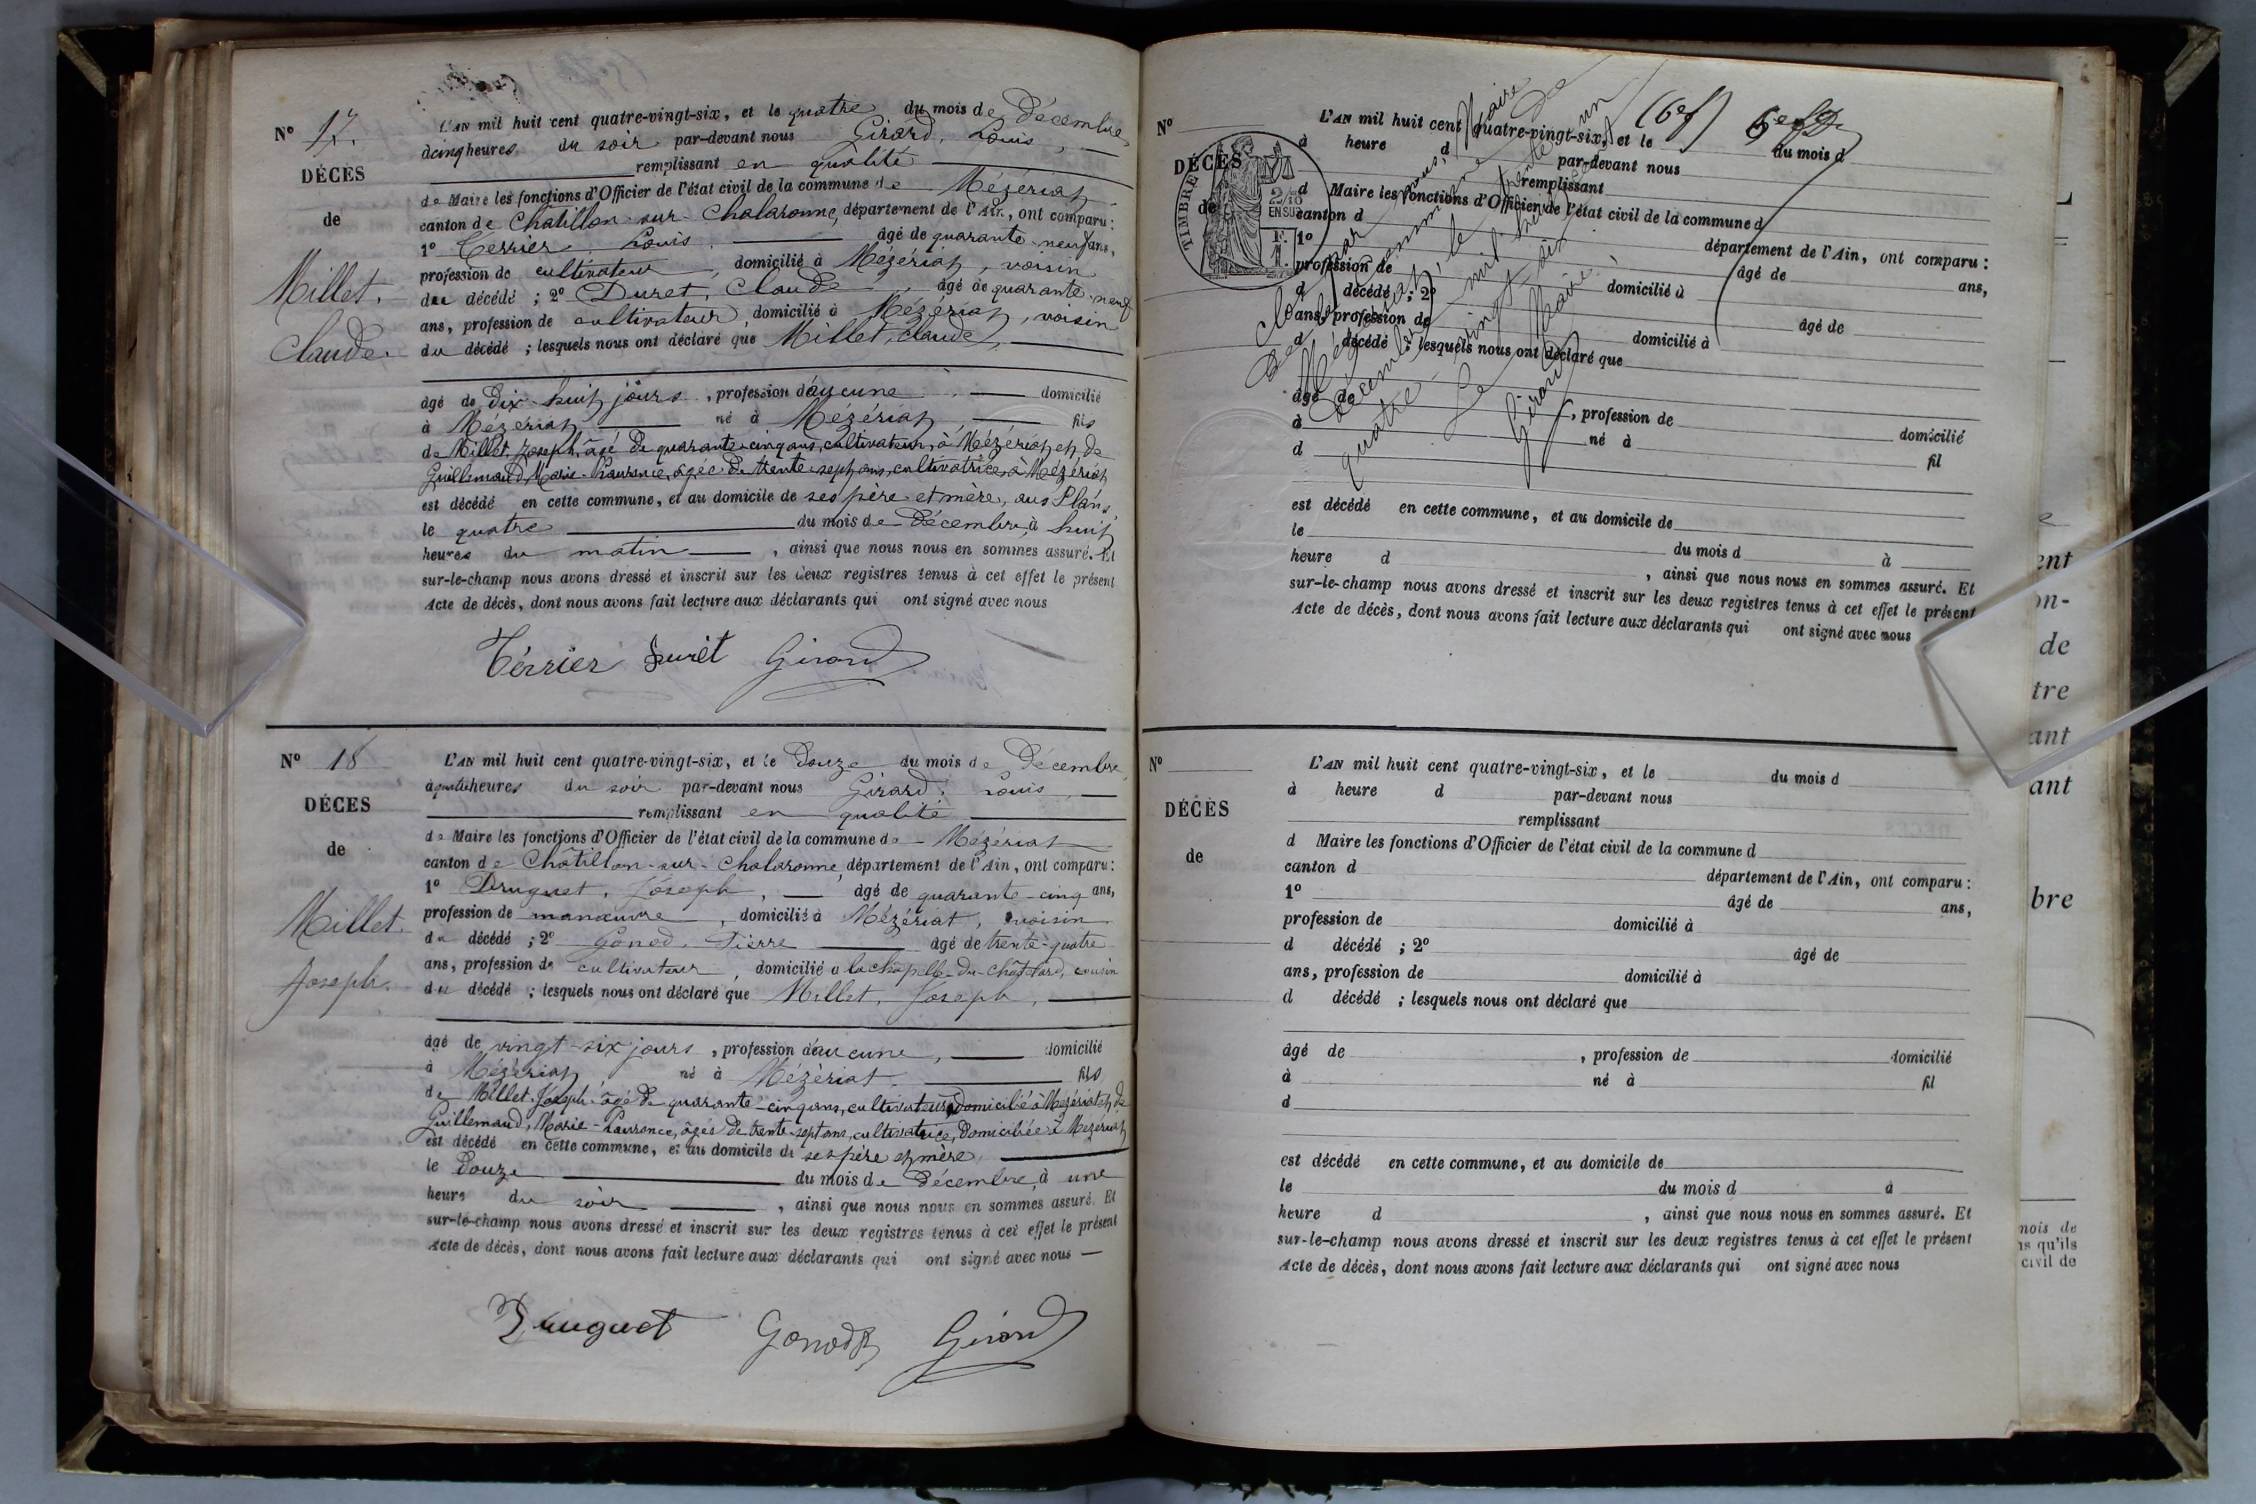 N° 17.
DÉCÈS
de
Millet,
Claude.
L'AN mil huit cent quatre-vingt-six, et le quatre du mois de Décembre,
à cinq heures du soir par-devant nous Girard, Louis,
remplissant en qualité
de Maire les fonctions d'Officier de l'état civil de la commune de Mézériat,
canton de Châtillon-sur-Chalaronne, département de l'Ain, ont comparu:
1° Terrier, Louis, âgé de quarante-neuf ans,
profession de cultivateur, domicilié à Mézériat, voisin
du décédé ; 2° Duret, Claude, âgé de quarante-neuf
ans, profession de cultivateur, domicilié à Mézériat, voisin
du décédé ; lesquels nous ont déclaré que Millet, Claude,
âgé de dix-huit jours, profession d'aucune, domicilié
à Mézériat né à Mézériat fils
de Millet, Joseph, âgé de quarante-cinq ans, cultivateur, à Mézériat et de
Guillemaud, Marie-Laurence, âgée de trente-sept ans, cultivatrice, à Mézériat
est décédé en cette commune, et au domicile de ses père et mère, aus Plans,
le quatre du mois de Décembre, à huit
heures du matin, ainsi que nous nous en sommes assuré. Et
sur-le-champ nous avons dressé et inscrit sur les deux registres tenus à cet effet le présent
Acte de décès, dont nous avons fait lecture aux déclarants qui ont signé avec nous
Térrier Duret Girard
N° 18
DÉCES
de
Millet.
Joseph.
L'AN mil huit cent quatre-vingt-six, et le Douze du mois de Décembre,
à quatre heures du soir par-devant nous Girard, Louis,
remplissant en qualité
de Maire les fonctions d'Officier de l'état civil de la commune de Mézériat
canton de Châtillon-sur-Chalaronne, département de l'Ain, ont comparu:
1° Druguet, Joseph, âgé de quarante-cinq ans,
profession de manœuvre, domicilié à Mézériat, voisin
du décédé ; 2° Gonod, Pierre âgé de trente-quatre
ans, profession de cultivateur, domicilié à la chapelle-du-châtelard, cousin
du décédé ; lesquels nous ont déclaré que Millet, Joseph,
âgé de vingt-six jours, profession d'aucune, domicilié
à Mézériat né à Mézériat, fils
de Millet, Joseph, âgé de quarante-cinq ans, cultivateur, domicilié à Mézériat et de
Guillemaud, Marie-Laurence, âgée de trente-sept ans, cultivatrice, domiciliée à Mézériat
est décédé en cette commune, et au domicile de ses père et mère,
le Douze du mois de Décembre, à une
heure du soir, ainsi que nous nous en sommes assuré. Et
sur-le-champ nous avons dressé et inscrit sur les deux registres tenus à cet effet le présent
Acte de décès, dont nous avons fait lecture aux déclarants qui ont signé avec nous —
Druguet Gonod P Girard
Clos par nous, Maire
de la commune de
Mézériat, le trente un
décembre mil huit cent
quatre-vingt-six
Le Maire
Girard
(6ef)
TIMBRE
2/10
EN SUS
N°
DÉCÈS
de
L'AN mil huit cent quatre-vingt-six, et le du mois d
à heure d par-devant nous
remplissant
d Maire les fonctions d'Officier de l'état civil de la commune d
canton d département de l'Ain, ont comparu :
1° âgé de ans,
profession de domicilié à
d décédé ; 2° âgé de
ans, profession de domicilié à
d décédé ; lesquels nous ont déclaré que
âgé de , profession de domicilié
à né à fil
d
est décédé en cette commune, et au domicile de
le du mois d à
heure d , ainsi que nous nous en sommes assuré. Et
sur-le-champ nous avons dressé et inscrit sur les deux registres tenus à cet effet le présent
Acte de décès, dont nous avons fait lecture aux déclarants qui ont signé avec nous
N°
DÉCÈS
de
L'AN mil huit cent quatre-vingt-six, et le du mois d
à heure d par-devant nous
remplissant
d Maire les fonctions d'Officier de l'état civil de la commune d
canton d département de l'Ain, ont comparu :
1° âgé de ans,
profession de domicilié à
d décédé ; 2° âgé de
ans, profession de domicilié à
d décédé ; lesquels nous ont déclaré que
âgé de , profession de domicilié
à né à fil
d
est décédé en cette commune, et au domicile de
le du mois d à
heure d , ainsi que nous nous en sommes assuré. Et
sur-le-champ nous avons dressé et inscrit sur les deux registres tenus à cet effet le présent
Acte de décès, dont nous avons fait lecture aux déclarants qui ont signé avec nous
ent
on-
de
tre
ant
ant
bre
mois de
ns qu'ils
civil de